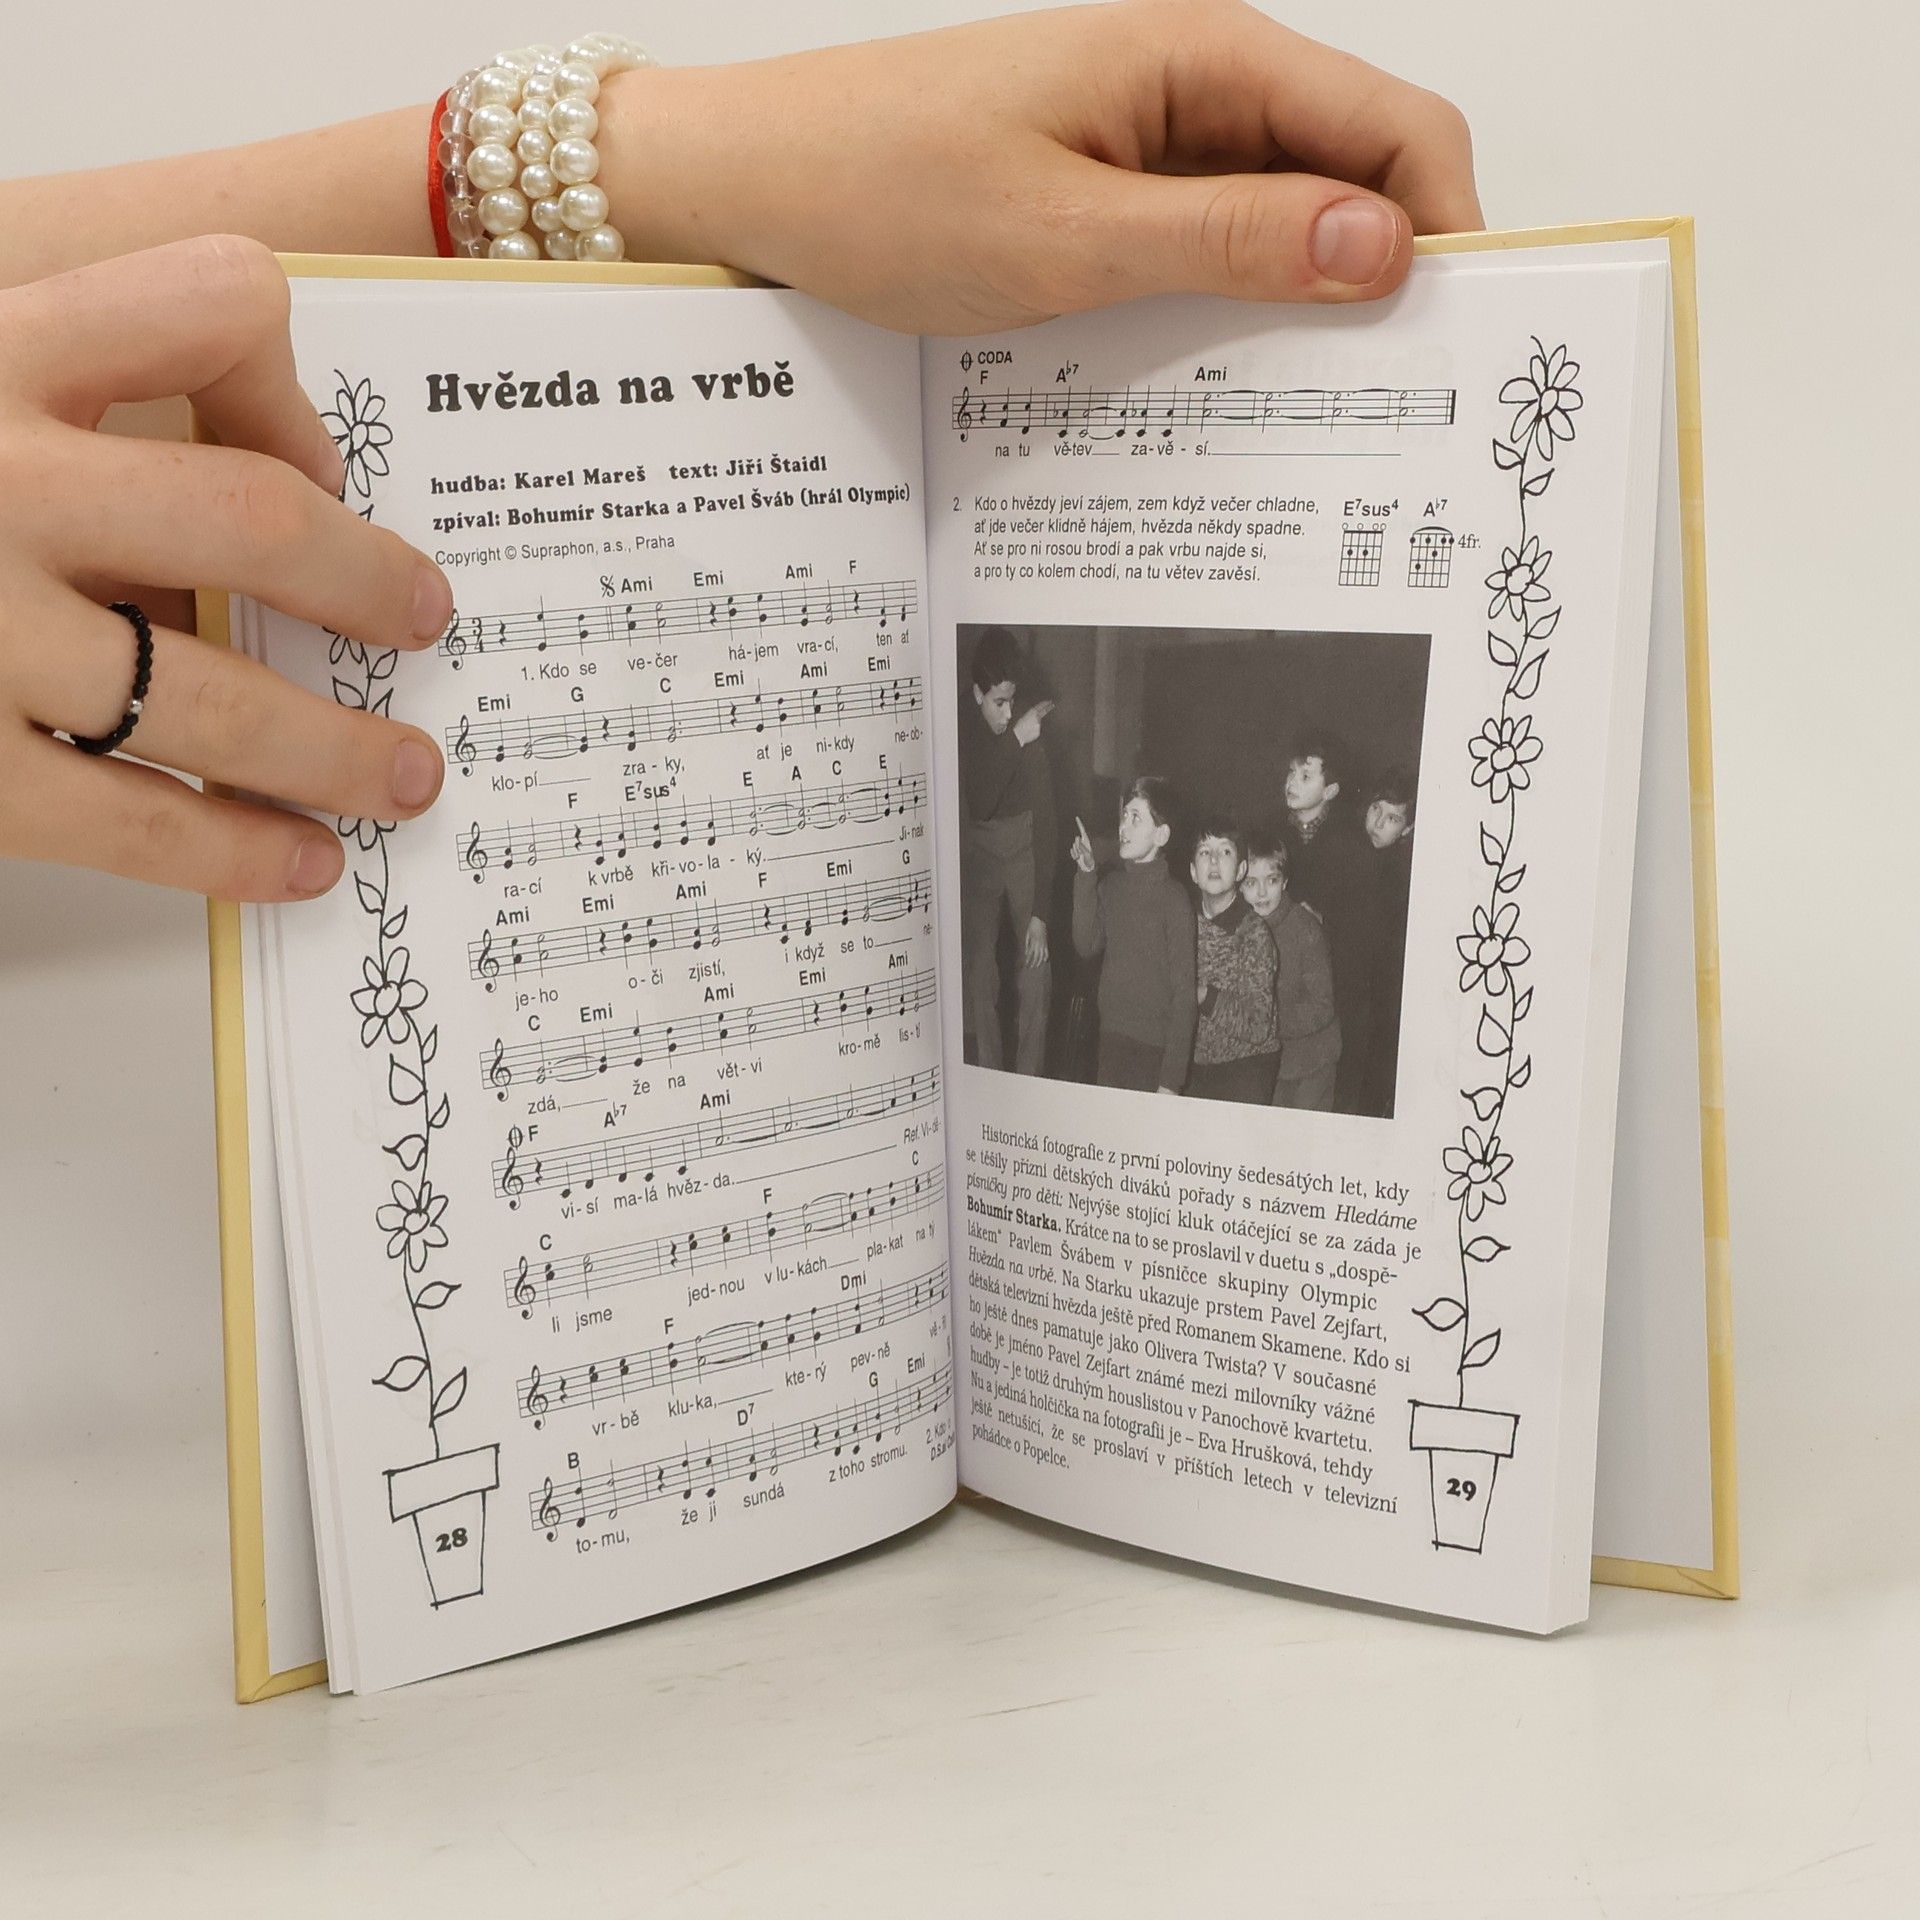 Hvězda na vrbě
hudba: Karel Mareš text: Jiří Štaidl
zpíval: Bohumír Starka a Pavel Šváb (hrál Olympic)
Copyright © Supraphon, a.s., Praha
Ami Emi Ami F
3 4
1. Kdo se ve-čer há-jem vra-cí, ten ať
Emi G C Emi Ami Emi
klo-pí zra-ky, ať je ni-kdy ne-ob-
F E7sus4 E A C E
ra-cí k vrbě kři-vo-la-ký. Ji-nak
Ami Emi Ami F Emi G
je-ho o-či zjistí, i když se to ne-
C Emi Ami Emi Ami
zdá, že na vět-vi kro-mě lis-tí
F A♭7 Ami
vi-sí ma-lá hvěz-da. Ref. Vi-dě-
C F C
li jsme jed-nou v lu-kách pla-kat na tý
F Dmi
vr-bě klu-ka, kte-rý pev-ně vě-ři
B D7 G Emi
to-mu, že ji sundá z toho stromu. 2. Kdo
28
CODA
F A♭7 Ami
na tu větev za-vě-sí.
2. Kdo o hvězdy jeví zájem, zem když večer chladne,
ať jde večer klidně hájem, hvězda někdy spadne.
Ať se pro ni rosou brodí a pak vrbu najde si,
a pro ty co kolem chodí, na tu větev zavěsí.
E7sus4 A♭7
4fr.
Historická fotografie z první poloviny šedesátých let, kdy
se těšily přízni dětských diváků pořady s názvem Hledáme
písničky pro děti: Nejvýše stojící kluk otáčející se za záda je
Bohumír Starka. Krátce na to se proslavil v duetu s „dospě-
lákem“ Pavlem Švábem v písničce skupiny Olympic
Hvězda na vrbě. Na Starku ukazuje prstem Pavel Zejfart,
dětská televizní hvězda ještě před Romanem Skamene. Kdo si
ho ještě dnes pamatuje jako Olivera Twista? V současné
době je jméno Pavel Zejfart známé mezi milovníky vážné
hudby – je totiž druhým houslistou v Panochově kvartetu.
Nu a jediná holčička na fotografii je – Eva Hrušková, tehdy
ještě netušící, že se proslaví v příštích letech v televizní
pohádce o Popelce.
29